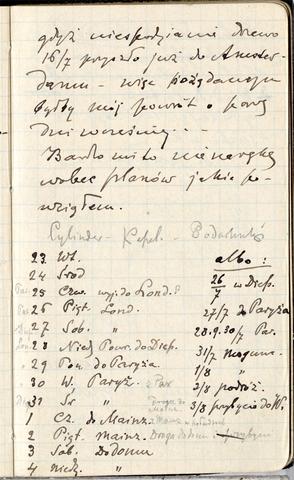 gdyż niespodzianie drzewo
16/7 przyszło już do Amster-
damu – więc pożądanem
byłby mój powrót o parę
dni wcześniej...
Bardzo mi to nie na rękę
wobec planów jakie po-
wziąłem.
Cylinder - Kapel. -
23 Wt.
albo:
24 Środ
26/7 w Diep.
25 Czw. wyj. do Lond.
27/7 do Paryża
26 Piąt. Lond.
28.9.30/7 Par.
27 Sob. "
31/7
28 Niedz. Pow. do Diep.
1/8 "
29 Pon. do Paryża
2/8 podróż.
30 W. Paryż.
3/8 przybycie do W.
31 Śr "
1 Cz. do Mainz
2 Piąt. Mainz. Droga do domu
3 Sob. Do domu
4 niedz. "